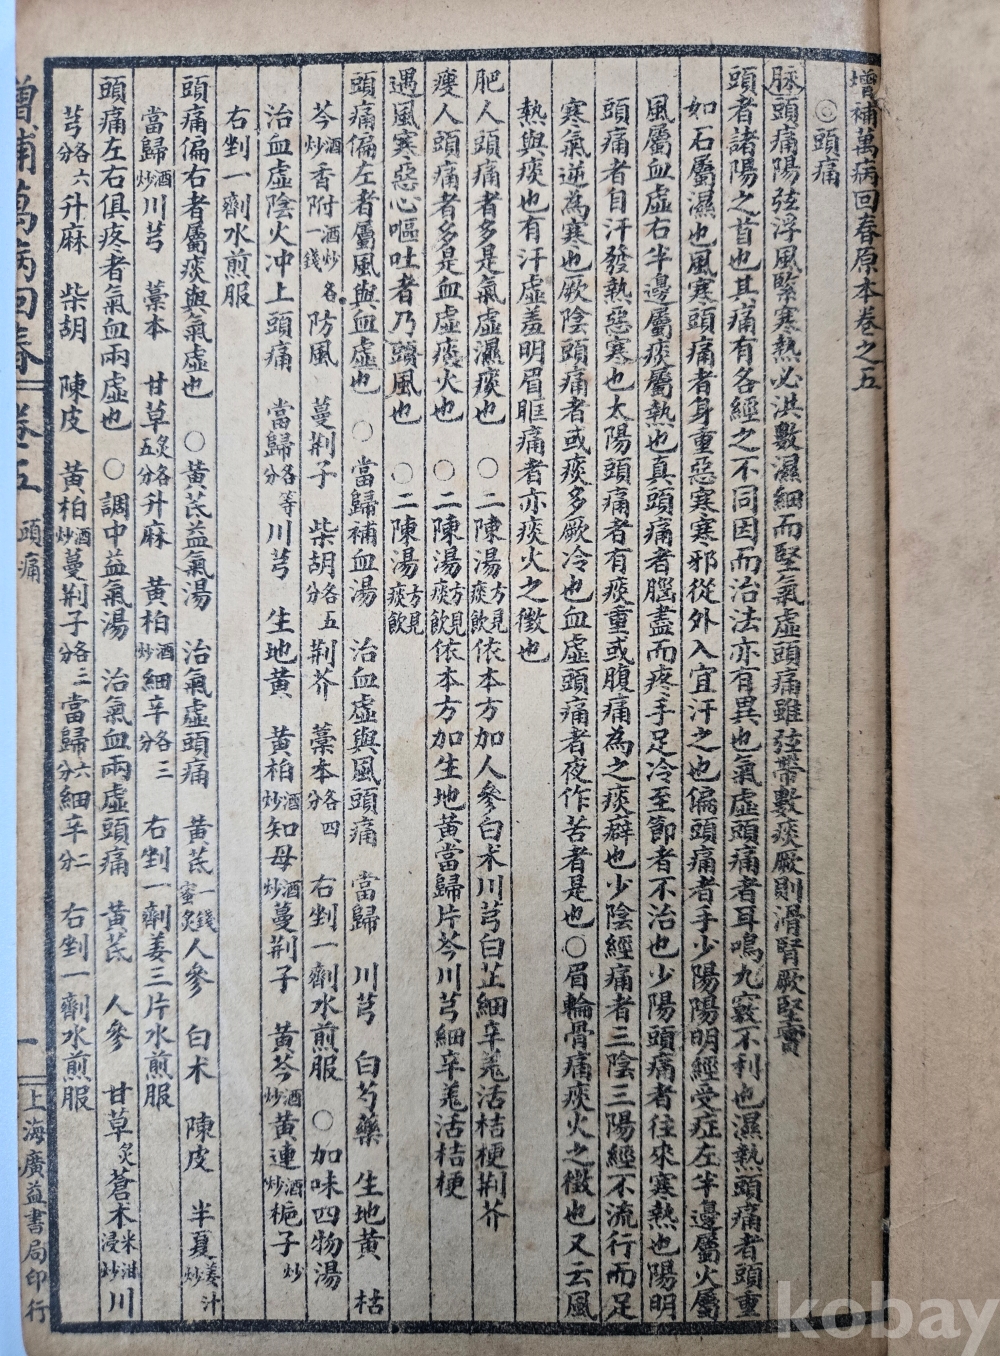 增補萬病回春原本卷之五
◎頭痛
脉頭痛陽弦浮風緊寒熱必洪數濕細而堅氣虛頭痛雖弦帶數痰厥則滑腎厥堅實
頭者諸陽之首也其痛有各經之不同因而治法亦有異也氣虛頭痛者耳鳴九竅不利也濕熱頭痛者頭重
如石屬濕也風寒頭痛者身重惡寒寒邪從外入宜汗之也偏頭痛者手少陽陽明經受症左半邊屬火屬
風屬血虛右半邊屬痰屬熱也真頭痛者腦盡而疼手足冷至節者不治也少陽頭痛者往來寒熱也陽明
頭痛者自汗發熱惡寒也太陽頭痛者有痰重或腹痛為之痰癖也少陰經痛者三陰三陽經不流行而足
寒氣逆為寒也厥陰頭痛者或痰多厥冷也血虛頭痛者夜作苦者是也〇眉輪骨痛痰火之徵也又云風
熱與痰也有汗虛羞明眉眶痛者亦痰火之徵也
肥人頭痛者多是氣虛濕痰也 〇二陳湯方見痰飲依本方加人參白朮川芎白芷細辛羗活桔梗荆芥
瘦人頭痛者多是血虛痰火也 〇二陳湯方見痰飲依本方加生地黃當歸片芩川芎細辛羗活桔梗
遇風寒惡心嘔吐者乃頭風也 〇二陳湯方見痰飲
頭痛偏左者屬風與血虛也 〇當歸補血湯 治血虛與風頭痛 當歸 川芎 白芍藥 生地黃 枯
芩酒炒香附酒炒各一錢防風 蔓荆子 柴胡各五分荆芥 藁本各四分 右剉一劑水煎服 〇加味四物湯
治血虛陰火冲上頭痛 當歸各等分川芎 生地黃 黃柏酒炒知母酒炒蔓荆子 黃芩酒炒黃連酒炒梔子炒
右剉一劑水煎服
頭痛偏右者屬痰與氣虛也 〇黃芪益氣湯 治氣虛頭痛 黃芪一錢蜜炙人參 白朮 陳皮 半夏姜汁炒
當歸酒炒川芎 藁本 甘草炙各五分升麻 黃柏酒炒細辛各三分 右剉一劑姜三片水煎服
頭痛左右俱疼者氣血兩虛也 〇調中益氣湯 治氣血兩虛頭痛 黃芪 人參 甘草炙蒼朮米泔浸炒川
芎各六分升麻 柴胡 陳皮 黃柏酒炒蔓荆子各三分當歸六分細辛二分 右剉一劑水煎服
增補萬病回春 卷五 頭痛 一 上海廣益書局印行
kobay